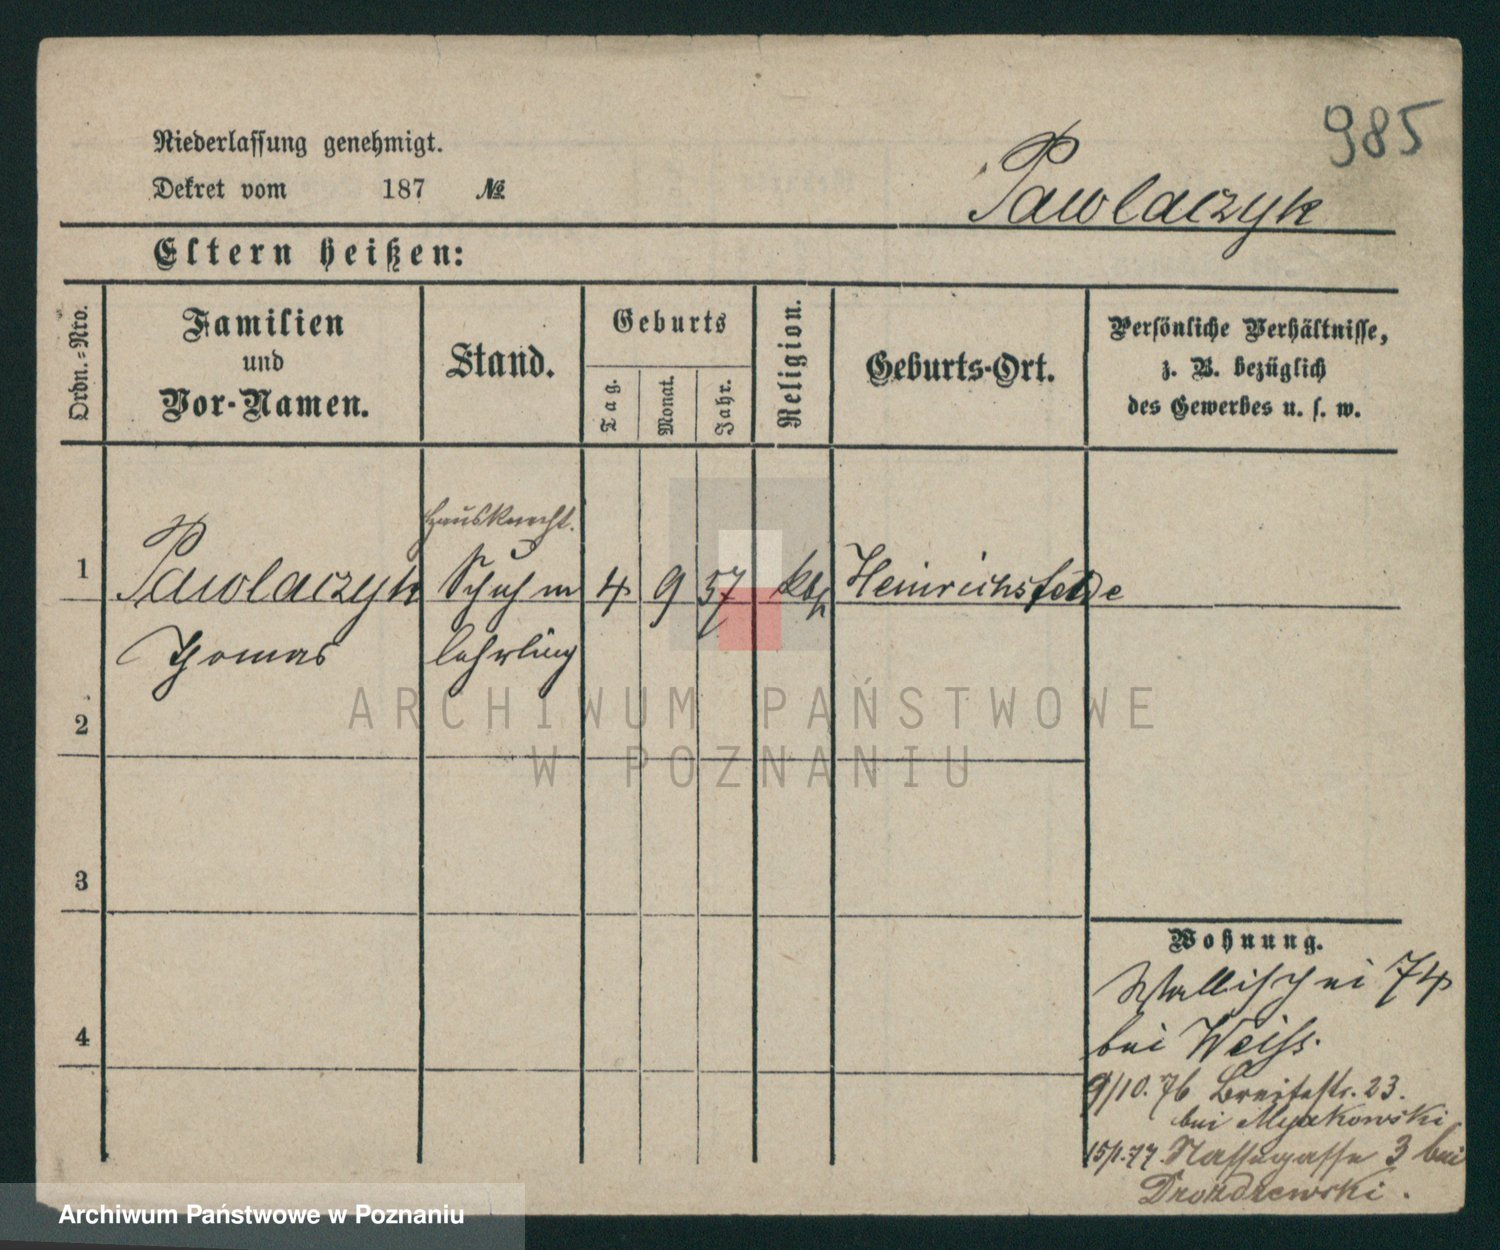 985
Niederlassung genehmigt.
Dekret vom 187 №
Pawolaczyk
Eltern heißen:
Ordn.-Nro.
Familien
und
Vor-Namen.
Stand.
Geburts
Tag.
Monat.
Jahr.
Religion.
Geburts-Ort.
Persönliche Verhältnisse,
z. B. bezüglich
des Gewerbes u. s. w.
Hausknecht.
1 Pawolaczyk Schuhm 4 9 57 kth Heinrichsfelde
Thomas lehrling
2
3
4
Wohnung.
Wallischei 74
bei Weiss.
9/10. 76 Breitestr. 23.
bei Myakowski
15/1. 77. Nassegasse 3 bei
Drozdzewski.
ARCHIWUM PAŃSTWOWE
W POZNANIU
Archiwum Państwowe w Poznaniu